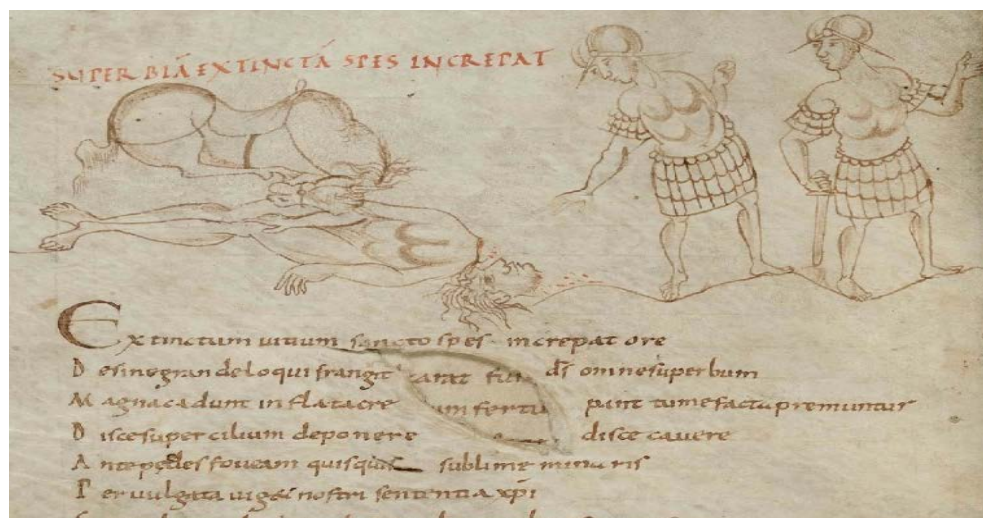 SUPERBIA EXTINCTA SPES INCREPAT
Extinctum uitium sancto spes increpat ore
Desine grande loqui frangit d̄s omne superbum
Magna cadunt inflata cre punt tumefacta premuntur
Disce supercilium deponere disce cauere
Ante pedes foueam quisquis sublime minaris
Peruulgata uiget nostri sententia xp̄i